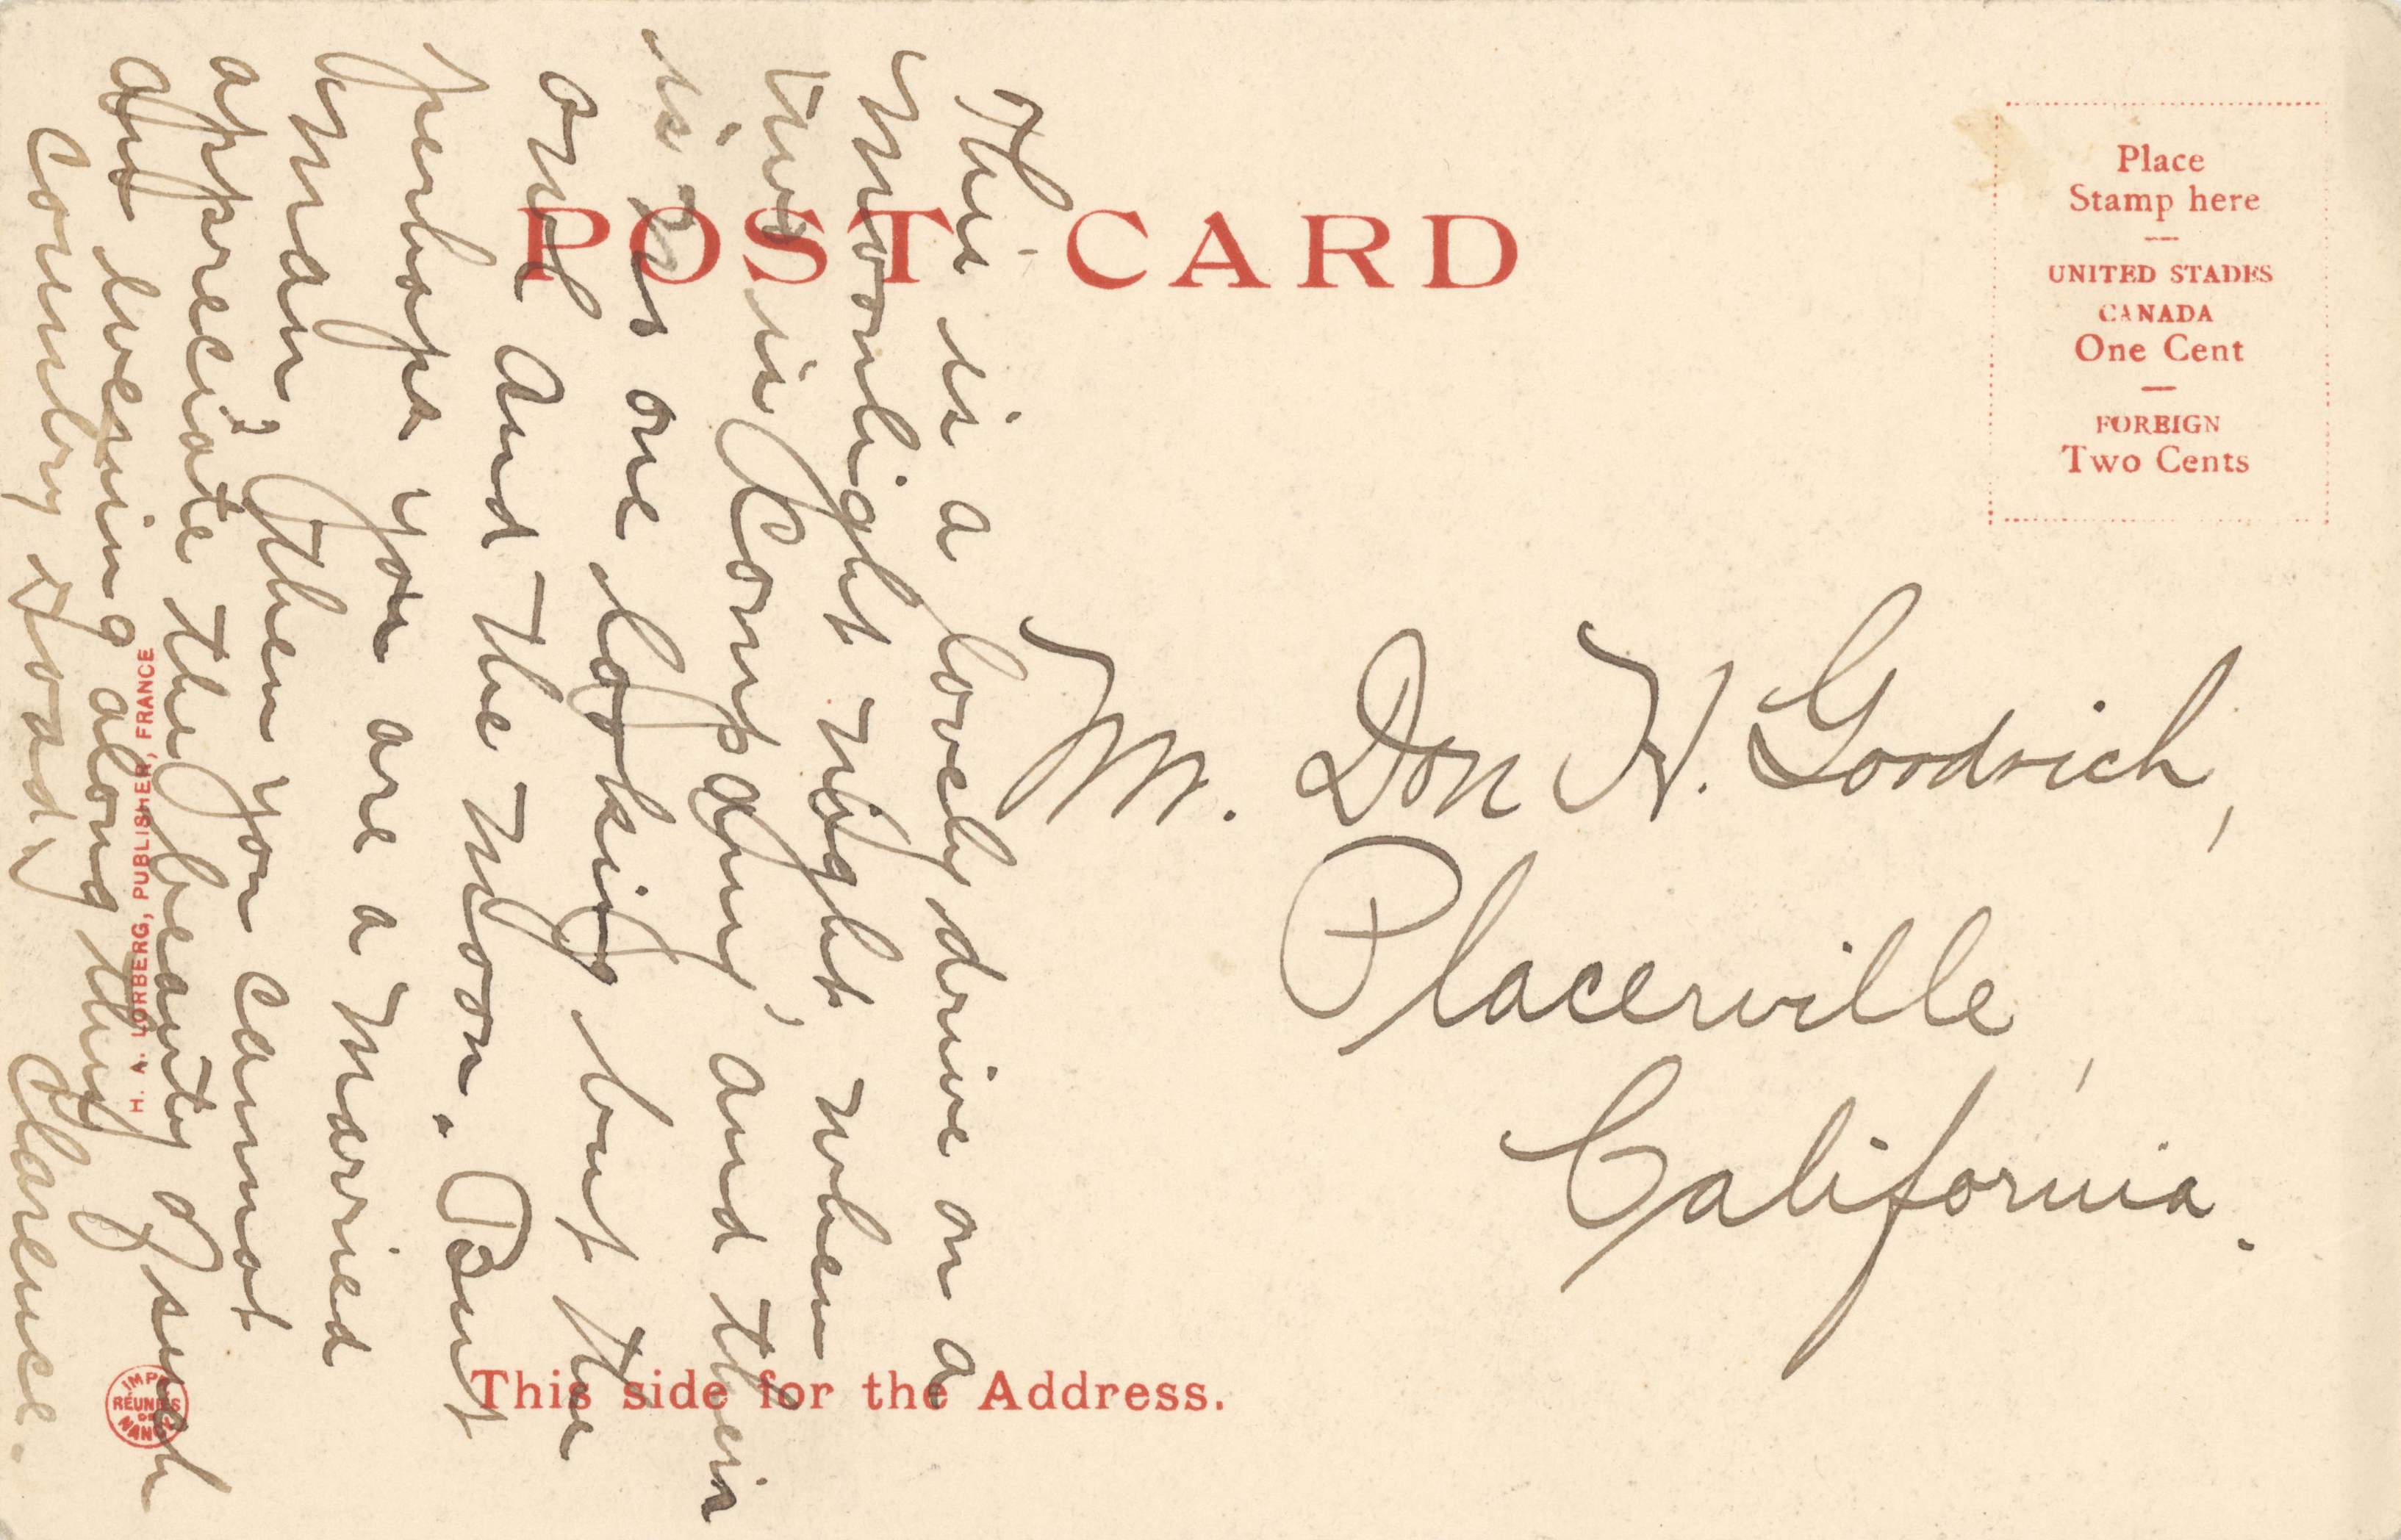 POST CARD
Place
Stamp here
UNITED STADES
CANADA
One Cent
FOREIGN
Two Cents
This is a lovely drive on a
moonlight night when
two is Company, and there
is no one looking but the
one and the moon. But
perhaps you are a married
man; then you cannot
appreciate the beauty of such
an evening along this
country road,
Clarence.
Mr. Don H. Goodrich,
Placerville,
California.
H. A. LORBERG, PUBLISHER, FRANCE
IMP
RÉUNIES
DE
NANCY
This side for the Address.